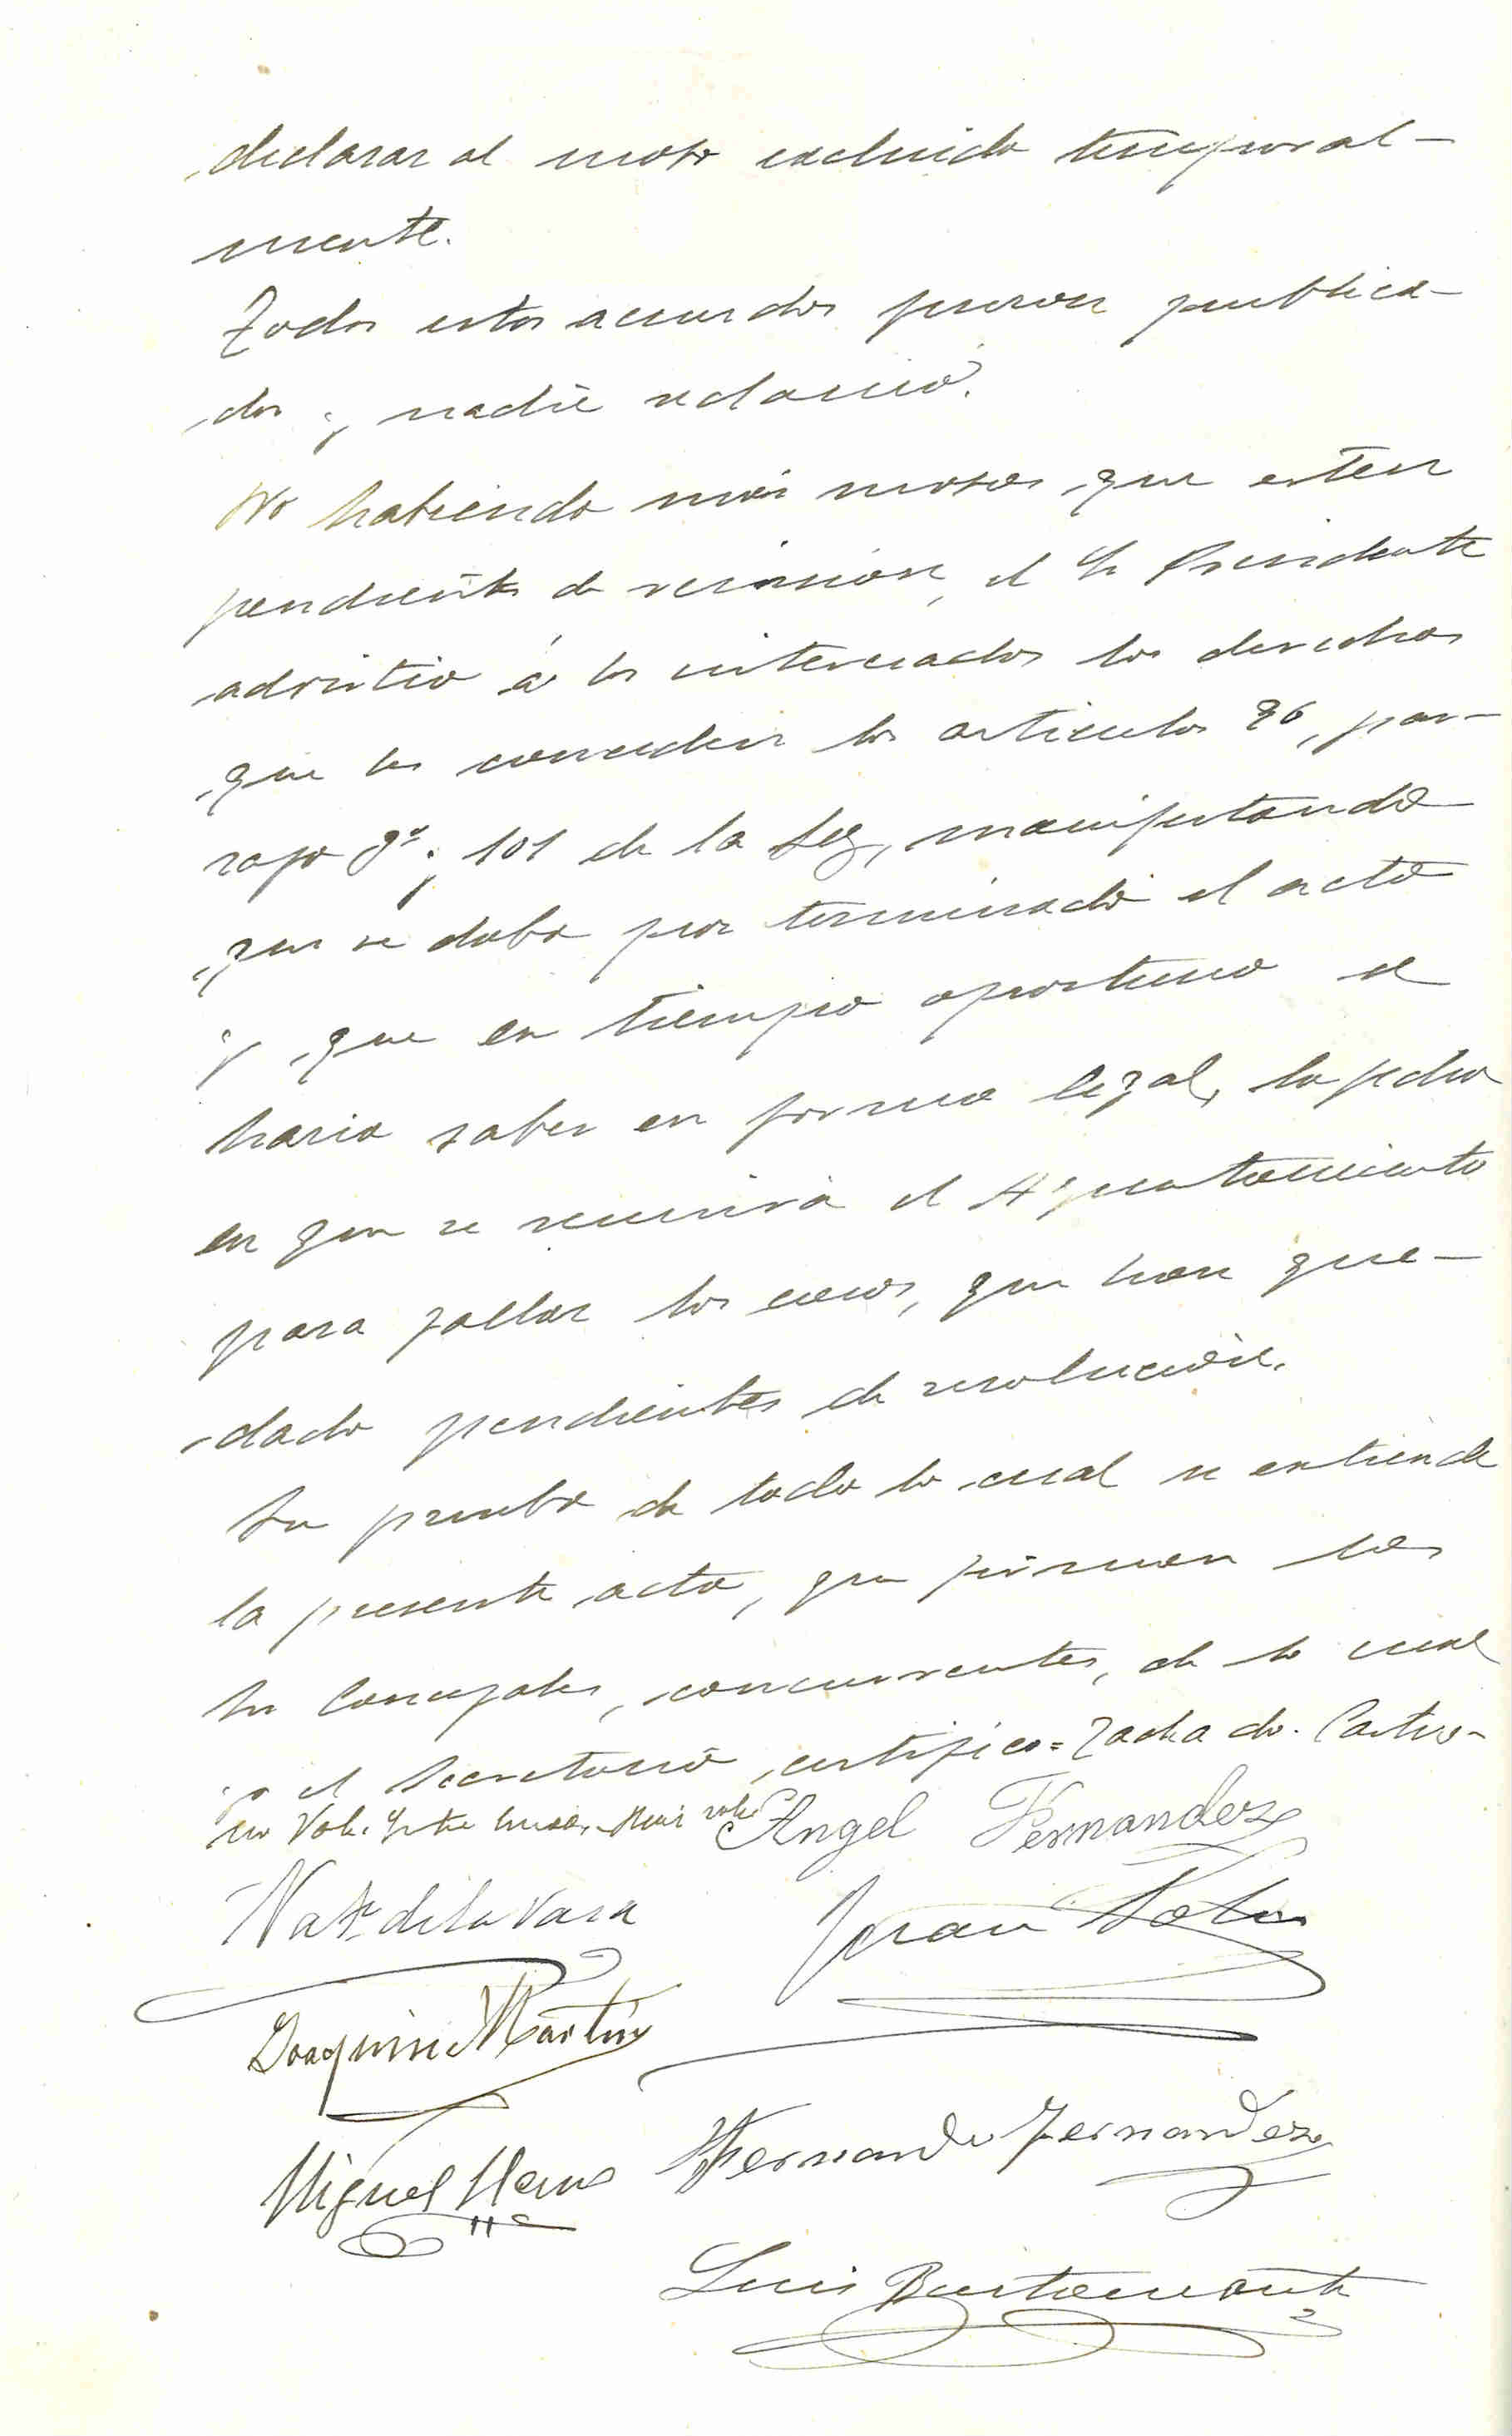 declarar al mozo excluido temporal-
mente.
Todos estos acuerdos fueron publica-
dos y nadie reclamó.
No habiendo más mozos que esten
pendientes de revisión, el Sr Presidente
advirtio á los interesados los derechos
que les conceden los articulos 96, par-
rafo 2º y 101 de la Ley, manifestando
que se daba por terminado el acto
y que en tiempo oportuno se
haria saber en forma legal, la fecha
en que se reunirá el Ayuntamiento
para fallar los casos, que han que-
dado pendientes de resolución.
En prueba de todo lo cual se extiende
la presente acta, que firman los
Sres Concejales, concurrentes, de lo cual
yo el Secretario, certifico = Tachado. Castro-
no Vale. Entre lineas. vale Angel Fernandez
Nat. de la Vara
Juan
Joaquin Martin
Fernando Fernandez
Miguel
Luis Bustamante